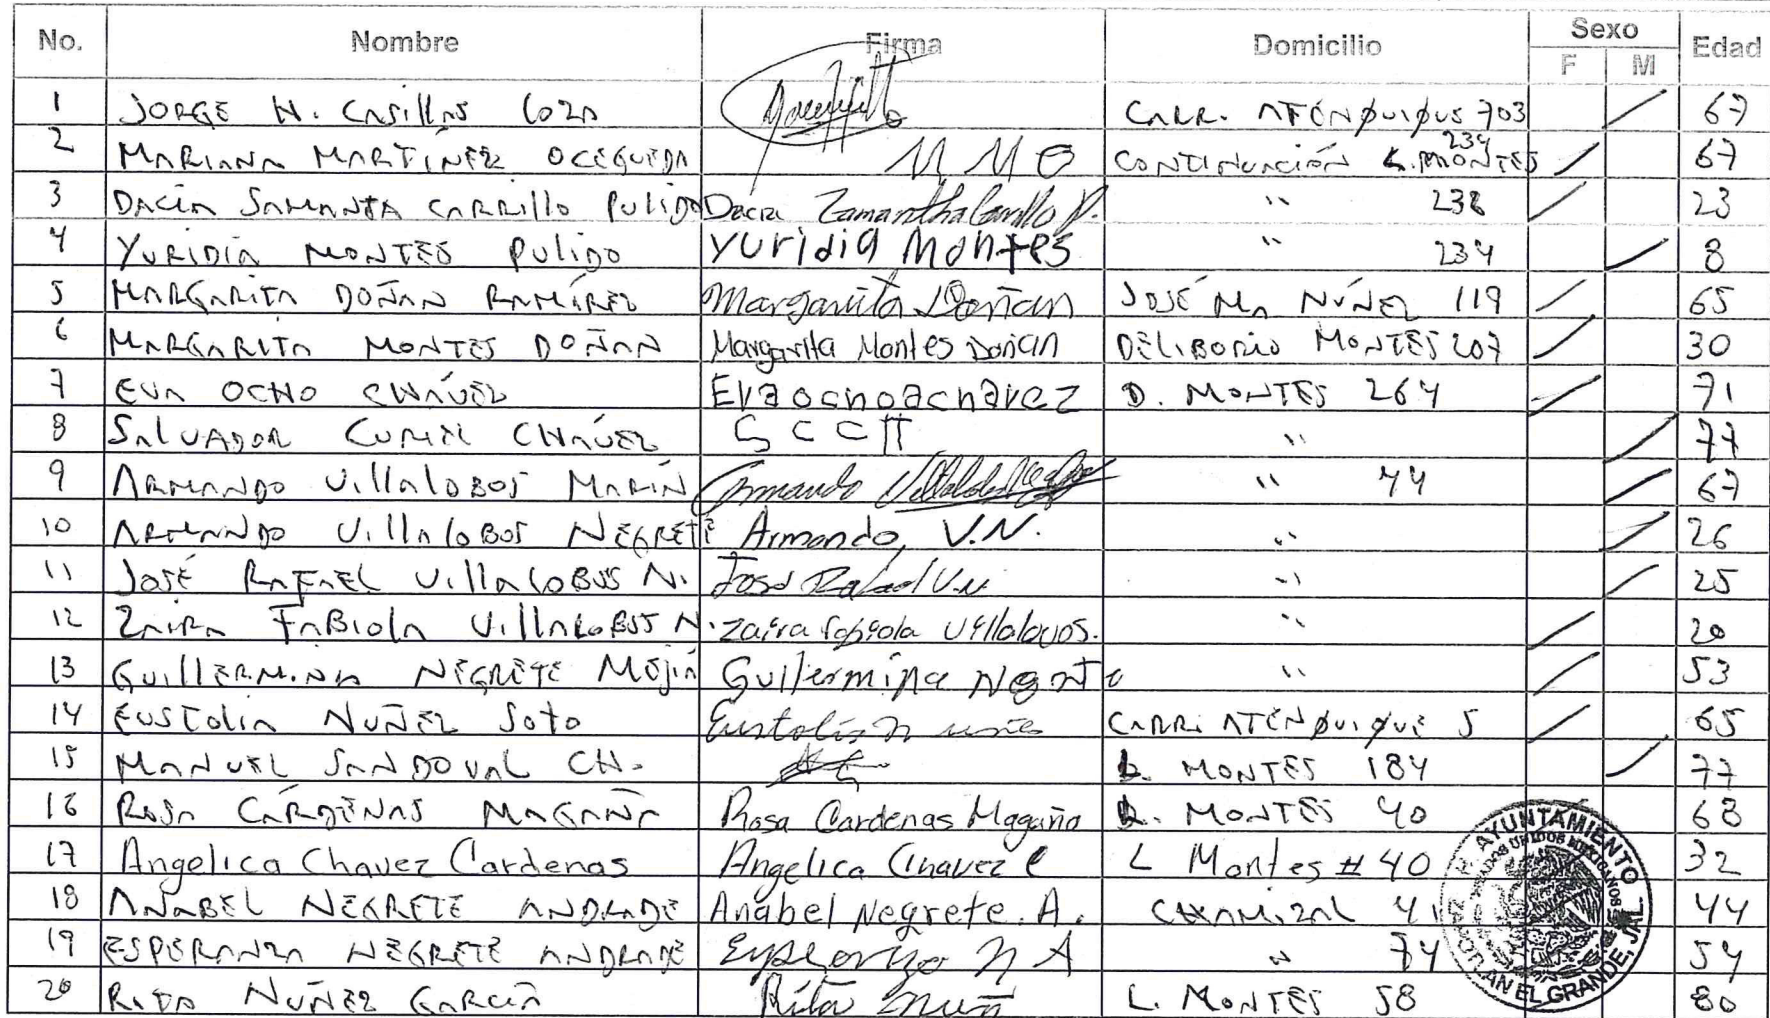 No. Nombre Firma Domicilio Sexo Edad
F M
1 JORGE H. CASILLAS LOZA CARR. ATENQUIQUE 703 67
2 MARIANA MARTINEZ OCEGUEDA M M O CONTINUACIÓN L. MONTES 234 67
3 DACIA SAMANTA CARRILLO PULIDO Dacia Zamantha Carrillo P. " 238 23
4 YURIDIA MONTES PULIDO Yuridia Montes " 234 8
5 MARGARITA DOÑAN RAMÍREZ Margarita Doñan JOSÉ MA NÚÑEZ 119 65
6 MARGARITA MONTES DOÑAN Margarita Montes Doñan DELIBORIO MONTES 207 30
7 EVA OCHO CHÁVEZ Eva ochoa chavez D. MONTES 264 71
8 SALVADOR CURIEL CHÁVEZ S C C H " 77
9 ARMANDO VILLALOBOS MARIN Armando " 44 67
10 ARMANDO VILLALOBOS NEGRETE Armando, V.N. " 26
11 JOSÉ RAFAEL VILLALOBOS N. José Rafael V.N " 25
12 ZAIRA FABIOLA VILLALOBOS N. Zaira fabiola Villalovos. " 20
13 GUILLERMINA NEGRETE MEJIA Guillermina Negrete " 53
14 EUSTOLIA NUÑEZ SOTO Eustolia CARR. ATENQUIQUE 5 65
15 MANUEL SANDOVAL CH. L. MONTES 184 77
16 ROSA CÁRDENAS MAGAÑA Rosa Cardenas Magaña L. MONTES 40 68
17 Angelica Chavez Cardenas Angelica Chavez C L Montes # 40 32
18 ANABEL NEGRETE ANDRADE Anabel Negrete. A. CHAMIZAL 41 44
19 ESPERANZA NEGRETE ANDRADE N A " 74 54
20 RITA NUÑEZ GARCIA Rita Nuñ L. MONTES 58 80
AYUNTAMIENTO
ESTADOS UNIDOS MEXICANOS
ZAPOTLAN EL GRANDE, JAL.